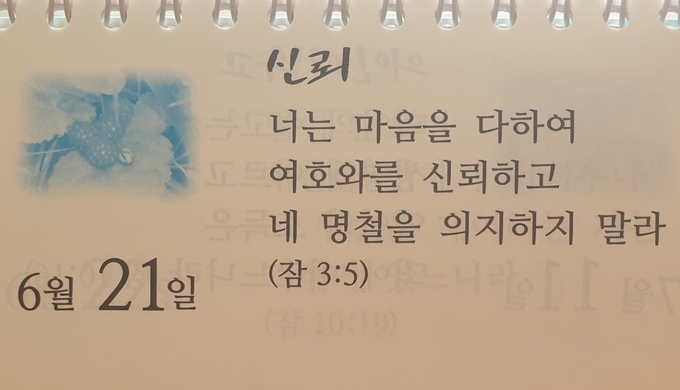 신뢰
너는 마음을 다하여
여호와를 신뢰하고
네 명철을 의지하지 말라
(잠 3:5)
6월 21일
(잠 10:19)
7월 11일